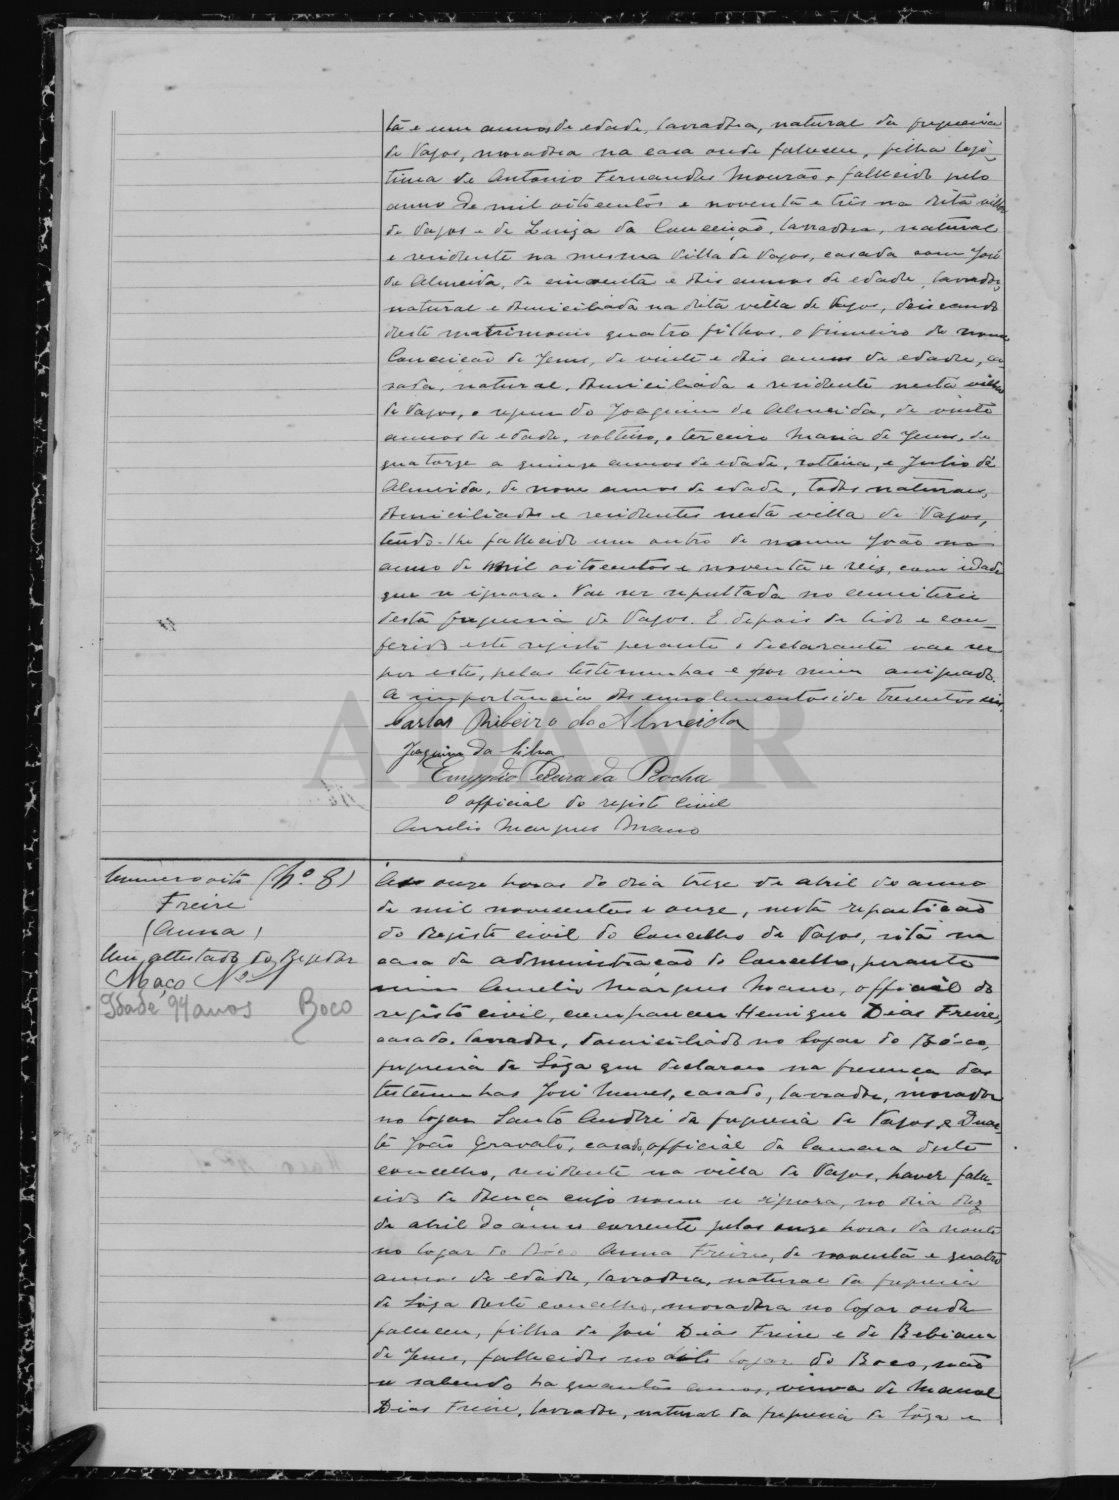 ta e um annos de edade, lavradora, natural da freguesia
de Vagos, moradora na casa onde faleceu, filha legi-
tima de Antonio Fernandes Mourão, fallecido pelo
anno de mil oitocentos e noventa e três na dita villa
de Vagos e de Luiza da Conceição, lavradora, natural
e residente na mesma villa de Vagos, casada com José
de Almeida, de cincoenta e dois annos de edade, lavrador,
natural e domiciliado na dita villa de Vagos, deixando
deste matrimonio quatro filhos, o primeiro de nome
Conceição de Jesus, de vinte e dois annos de edade, ca-
sada, natural, domiciliada e residente nesta villa
de Vagos, o segundo Joaquim de Almeida, de vinte
annos de edade, solteiro, o terceiro Maria de Jesus, de
quatorze a quinze annos de edade, solteira, e Julio de
Almeida, de nove annos de edade, todos naturaes,
domiciliados e residentes nesta villa de Vagos,
tendo-lhe fallecido um outro de nome João no
anno de mil oitocentos e noventa e seis, com idade
que se ignora. Vae ser sepultada no cemiterio
desta freguesia de Vagos. E depois de lido e con-
ferido este registo perante o declarante vae ser
por este, pelas testemunhas e por mim assignado.
A importancia dos emolumentos é de trezentos reis.
Carlos Ribeiro de Almeida
Joaquim da Silva
Emygdio Pereira da Rocha
O official do registo civil
Aurelio Marques Mano
ADAVR
Numero oito (Nº 8)
Freire
(Anna)
Um attestado do Regedor
Maço Nº 2
Idade 94 anos Boco
Aos onze horas do dia treze de abril do anno
de mil novecentos e onze, nesta repartição
do Registo civil do Concelho de Vagos, sita na
casa da administração do Concelho, perante
mim Aurelio Marques Mano, official do
registo civil, compareceu Henrique Dias Freire,
casado, lavrador, domiciliado no logar do Bôco,
freguesia de Sôza que declarou na presença das
testemunhas José Nunes, casado, lavrador, morador
no logar Santo André da freguesia de Vagos, e Duar-
te João Gravato, casado, official da Camara deste
concelho, residente na villa de Vagos, haver fale-
cido de doença cujo nome se ignora, no dia dez
de abril do anno corrente pelas onze horas da noute
no logar do Bôco Anna Freire, de noventa e quatro
annos de edade, lavradora, natural da freguesia
de Sôza deste concelho, moradora no logar onde
faleceu, filha de José Dias Freire e de Bebiana
de Jesus, fallecidos no dito logar do Boco, não
se sabendo ha quantos annos, viuva de Manoel
Dias Freire, lavrador, natural da freguesia de Sôza e